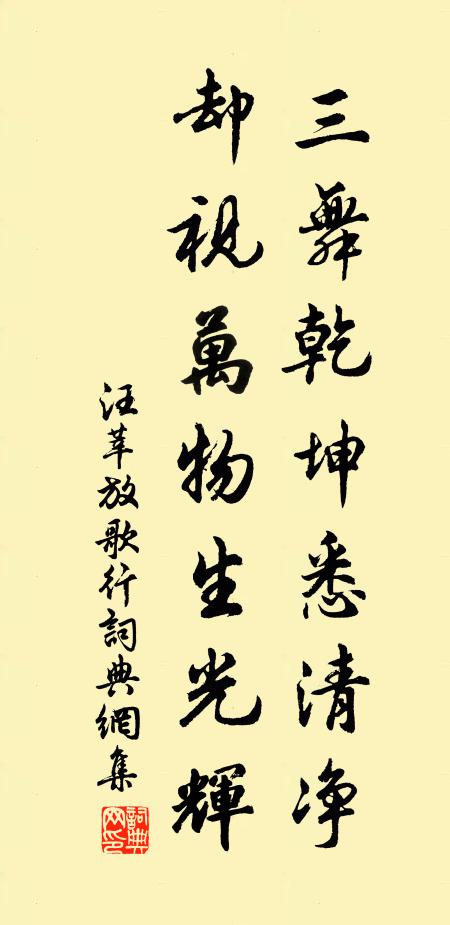 三舞乾坤悉清净
却視萬物生光輝
汪莘放歌行詞典網集
詞典網印